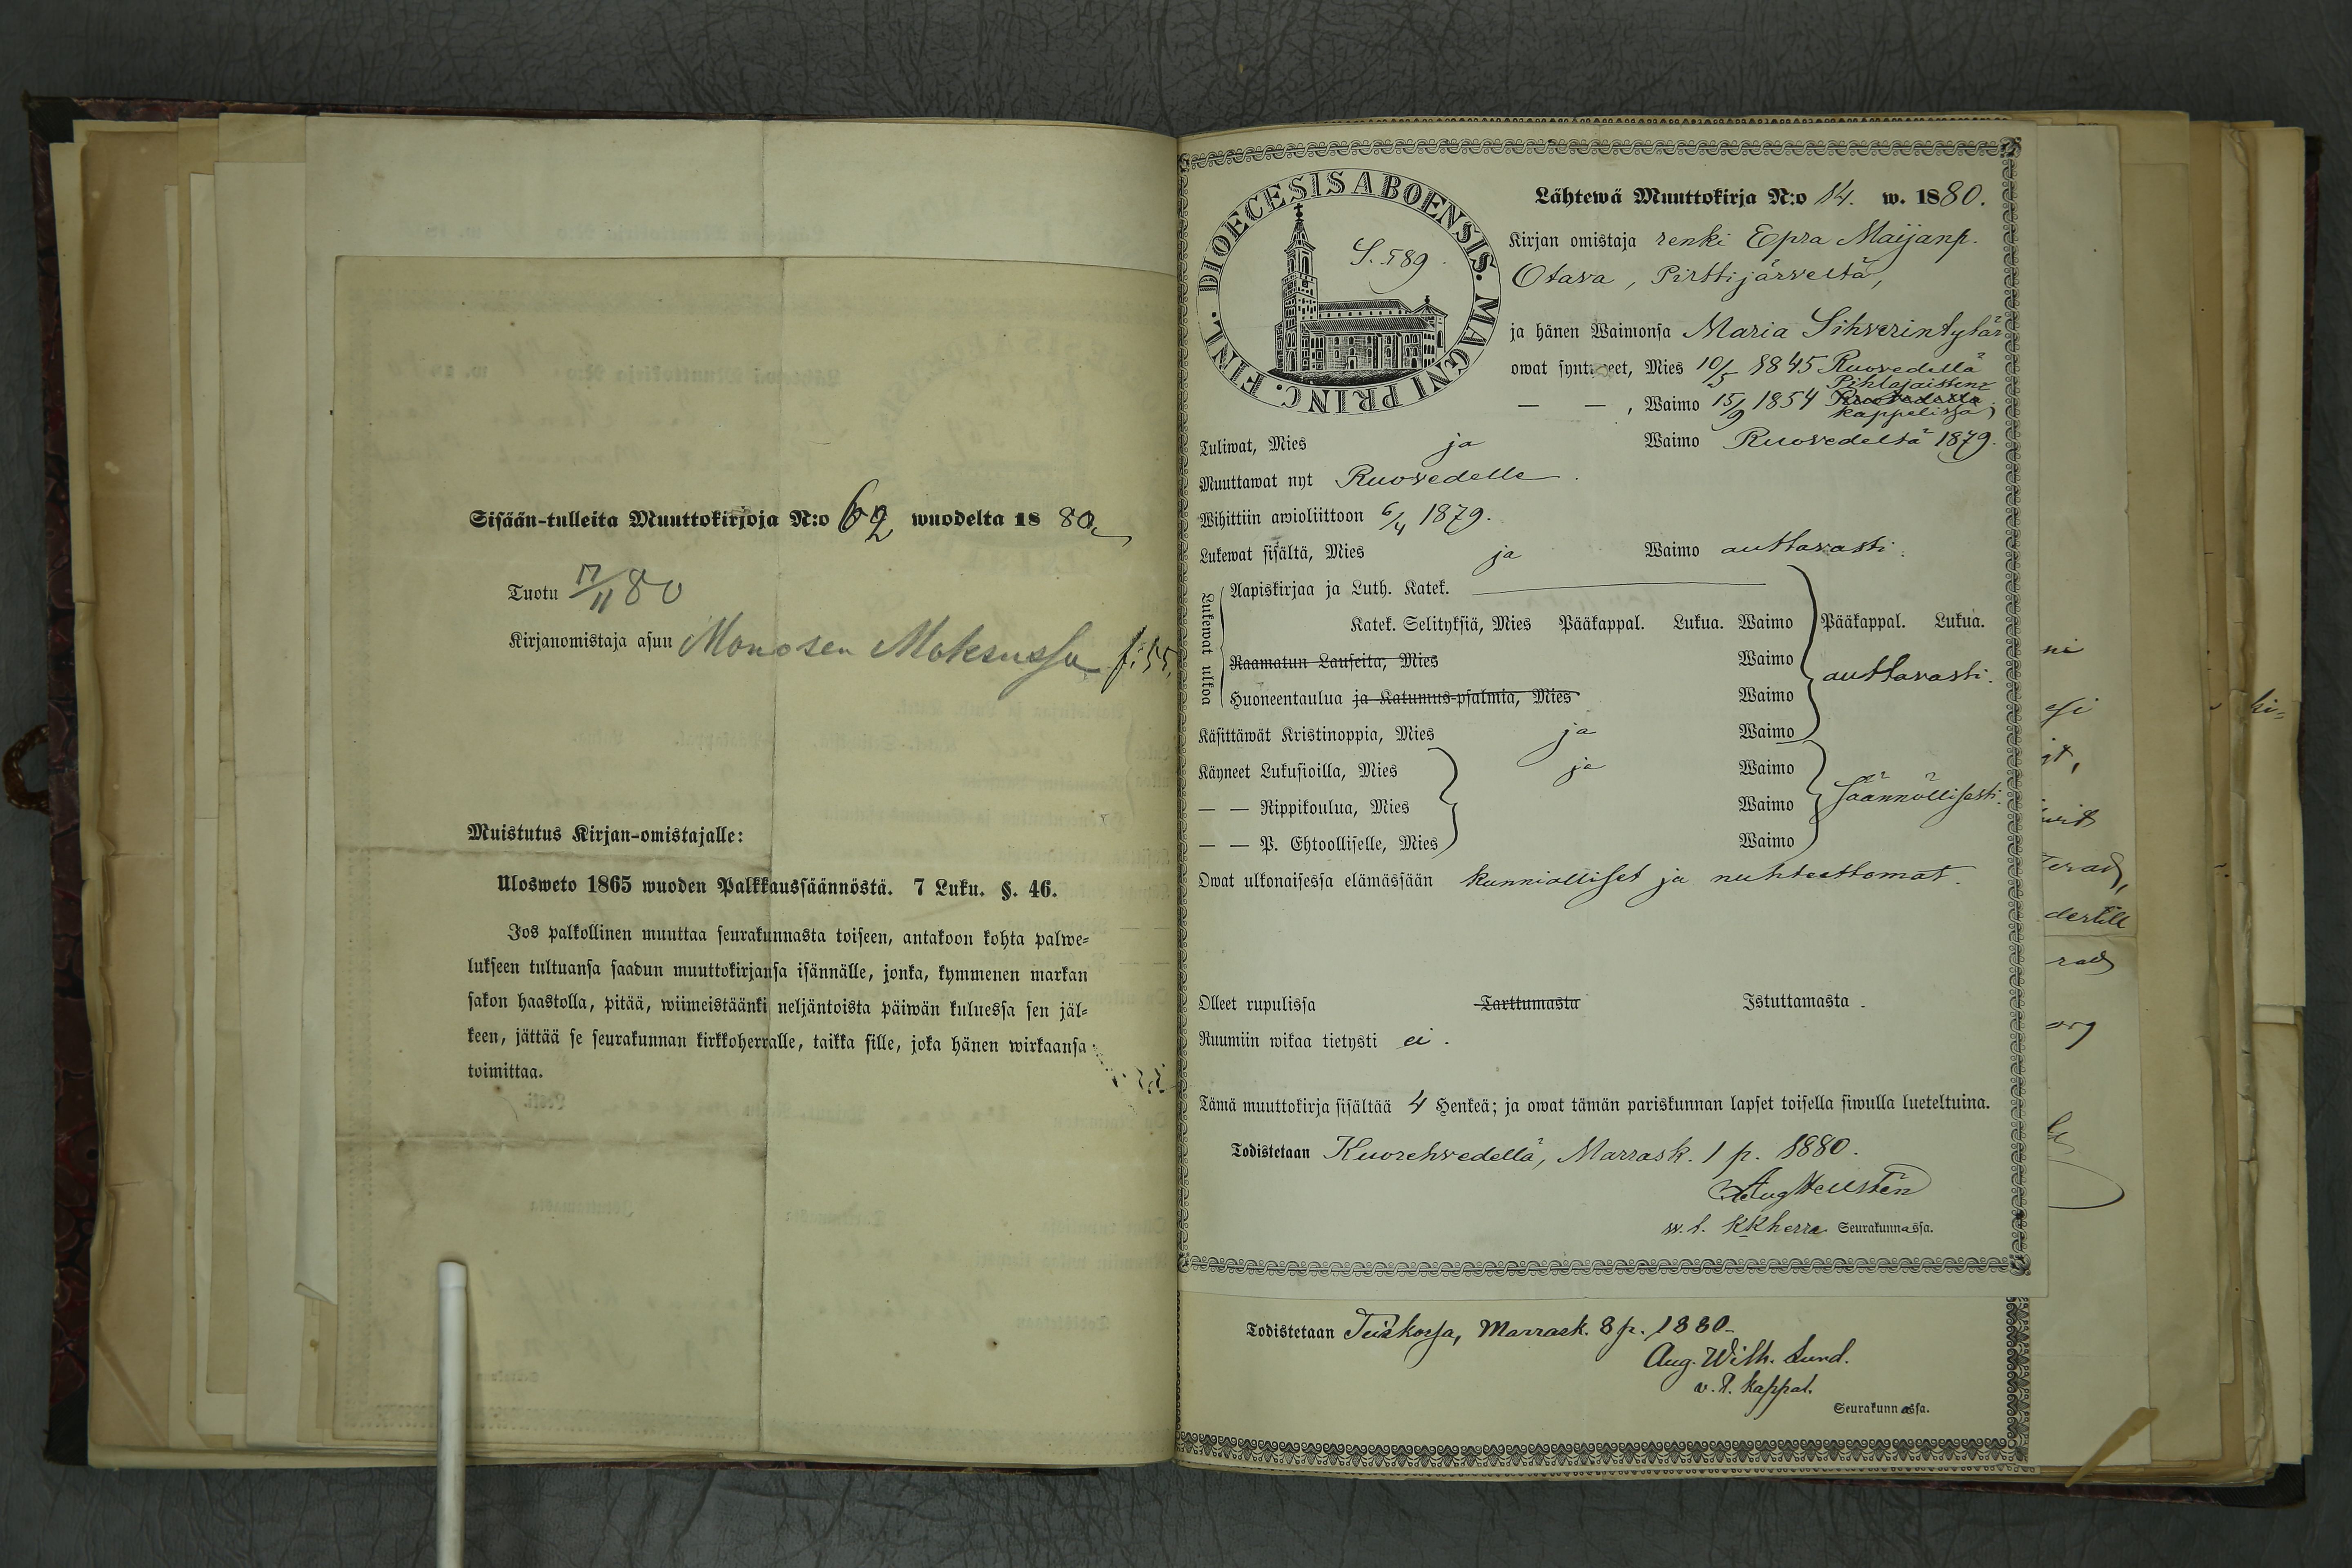 Sisään-tulleita Muuttokirjoja N:o 62 wuodelta 18 80
Tuotu 17/11 80
Kirjanomistaja asuu Monosen Moksussa f: 55.
Muistutus Kirjan-omistajalle:
Ulosweto 1865 wuoden Palkkaussäännöstä. 7 Luku. §. 46.
Jos palkollinen muuttaa seurakunnasta toiseen, antakoon kohta palwe-
lukseen tultuansa saadun muuttokirjansa isännälle, jonka, kymmenen markan
sakon haastolla, pitää, wiimeistäänki neljäntoista päiwän kuluessa sen jäl-
keen, jättää se seurakunnan kirkkoherralle, taikka sille, joka hänen wirkaansa
toimittaa.
DIOECESIS ABOENSIS. MAGNI PRINC. FINL.
S. 589.
Lähtewä Muuttokirja N:o 14. w. 1880.
Kirjan omistaja renki Epra Maijanp.
Otava, Pirttijärveltä,
ja hänen Waimonsa Maria Sihverintytär
owat syntyneet, Mies 10/5 1845 Ruovedellä
Pihlajaisten
— — , Waimo 15/9 1854 Ruovedellä
kappelissa,
Tuliwat, Mies ja Waimo Ruovedeltä 1879.
Muuttawat nyt Ruovedelle.
Wihittiin awioliittoon 6/4 1879.
Lukewat sisältä, Mies ja Waimo auttavasti.
Lukewat ulkoa
Aapiskirjaa ja Luth. Katek.
Katek. Selityksiä, Mies Pääkappal. Lukua. Waimo Pääkappal. Lukua.
Raamatun Lauseita, Mies Waimo auttavasti.
Huoneentaulua ja Katumus-psalmia, Mies Waimo
Käsittäwät Kristinoppia, Mies ja Waimo
Käyneet Lukusioilla, Mies ja Waimo
— — Rippikoulua, Mies Waimo säännöllisesti.
— — P. Ehtoolliselle, Mies Waimo
Owat ulkonaisessa elämässään kunnialliset ja nuhteettomat.
Olleet rupulissa Tarttumasta Istuttamasta.
Ruumiin wikaa tietysti ei.
Tämä muuttokirja sisältää 4 Henkeä; ja owat tämän pariskunnan lapset toisella siwulla lueteltuina.
Todistetaan Kuorehvedellä, Marrask. 1 p. 1880.
Aug Hellstén
w. t. KKherra Seurakunnassa.
Todistetaan Teiskossa, Marrask. 8 p. 1880
Aug. Wilh. Lund.
v. t. kappal.
Seurakunnassa.